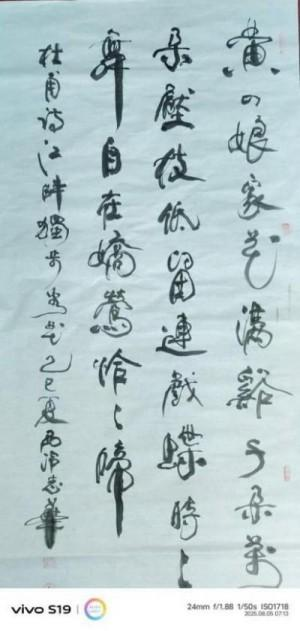 黄四娘家花满谿千朵万
朵壓枝低留連戲蝶時々
舞自在嬌鶯恰々啼
杜甫诗江畔獨步尋花乙巳夏西泠志華
vivo S19
24mm f/1.88 1/50s ISO1718
2025.08.05 07:13